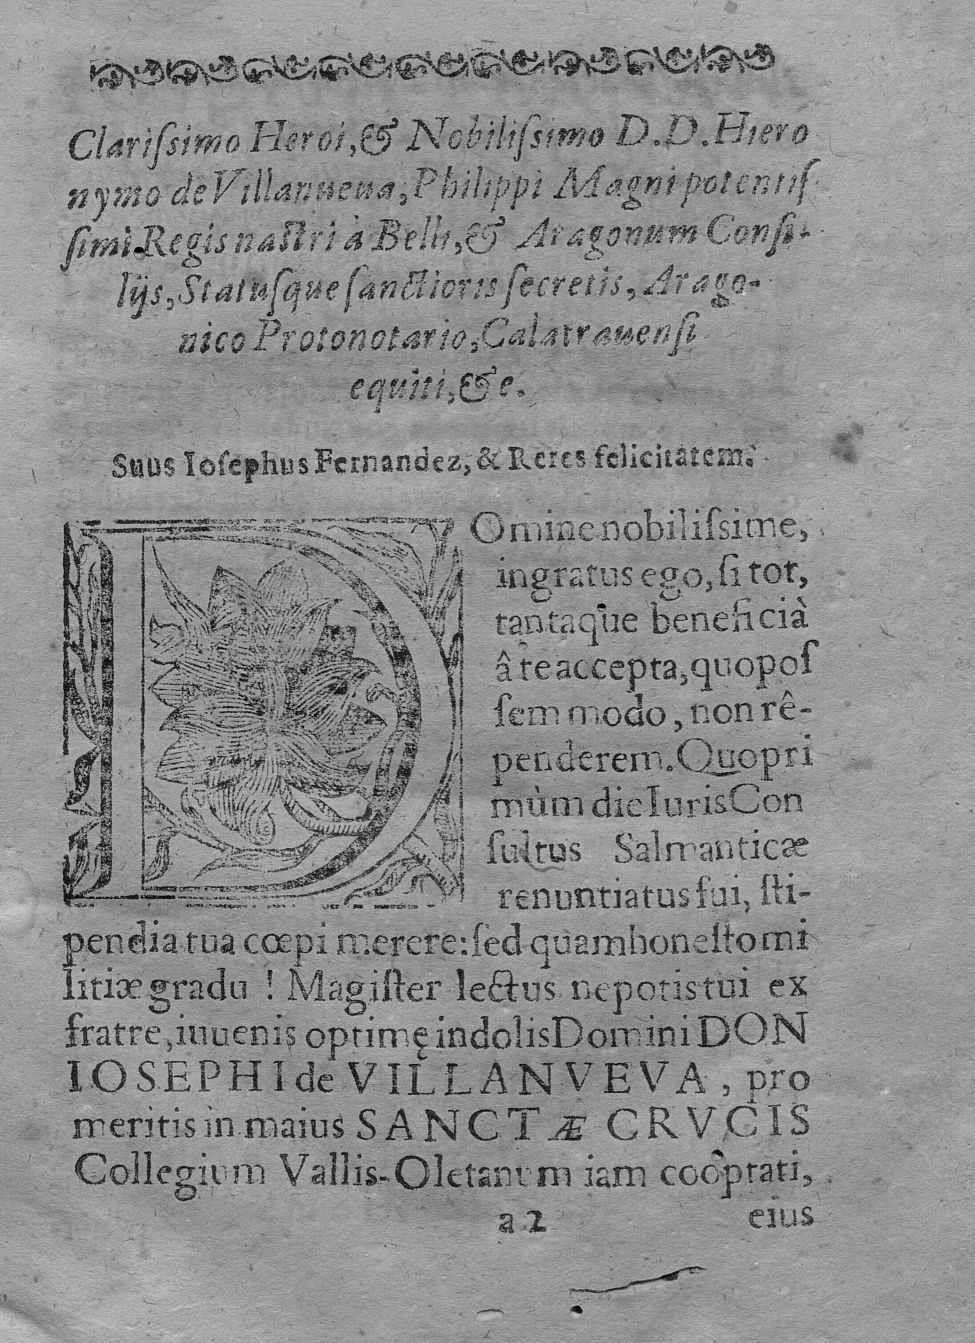 Clariſsimo Heroi, & Nobiliſsimo D. D. Hiero
nymo de Villanueua, Philippi Magni potentiſ
ſimi Regis noſtri à Belli, & Aragonum Conſi-
lijs, Statuſque ſanctioris ſecretis, Arago-
nico Protonotario, Calatrauenſi
equiti, &c.
Suus Ioſephus Fernandez, & Retes felicitatem.
DOmine nobiliſsime,
ingratus ego, ſi tot,
tantaque beneficià
â te accepta, quo poſ
ſem modo, non rê-
penderem. Quo pri
mùm die Iuris Con
ſultus Salmanticæ
renuntiatus fui, ſti-
pendia tua cœpi merere: ſed quam honeſto mi
litiæ gradu! Magiſter lectus nepotis tui ex
fratre, iuuenis optimę indolis Domini DON
IOSEPHI de VILLANVEVA, pro
meritis in maius SANCTÆ CRVCIS
Collegium Vallis-Oletanum iam cooptati,
a 2 eius